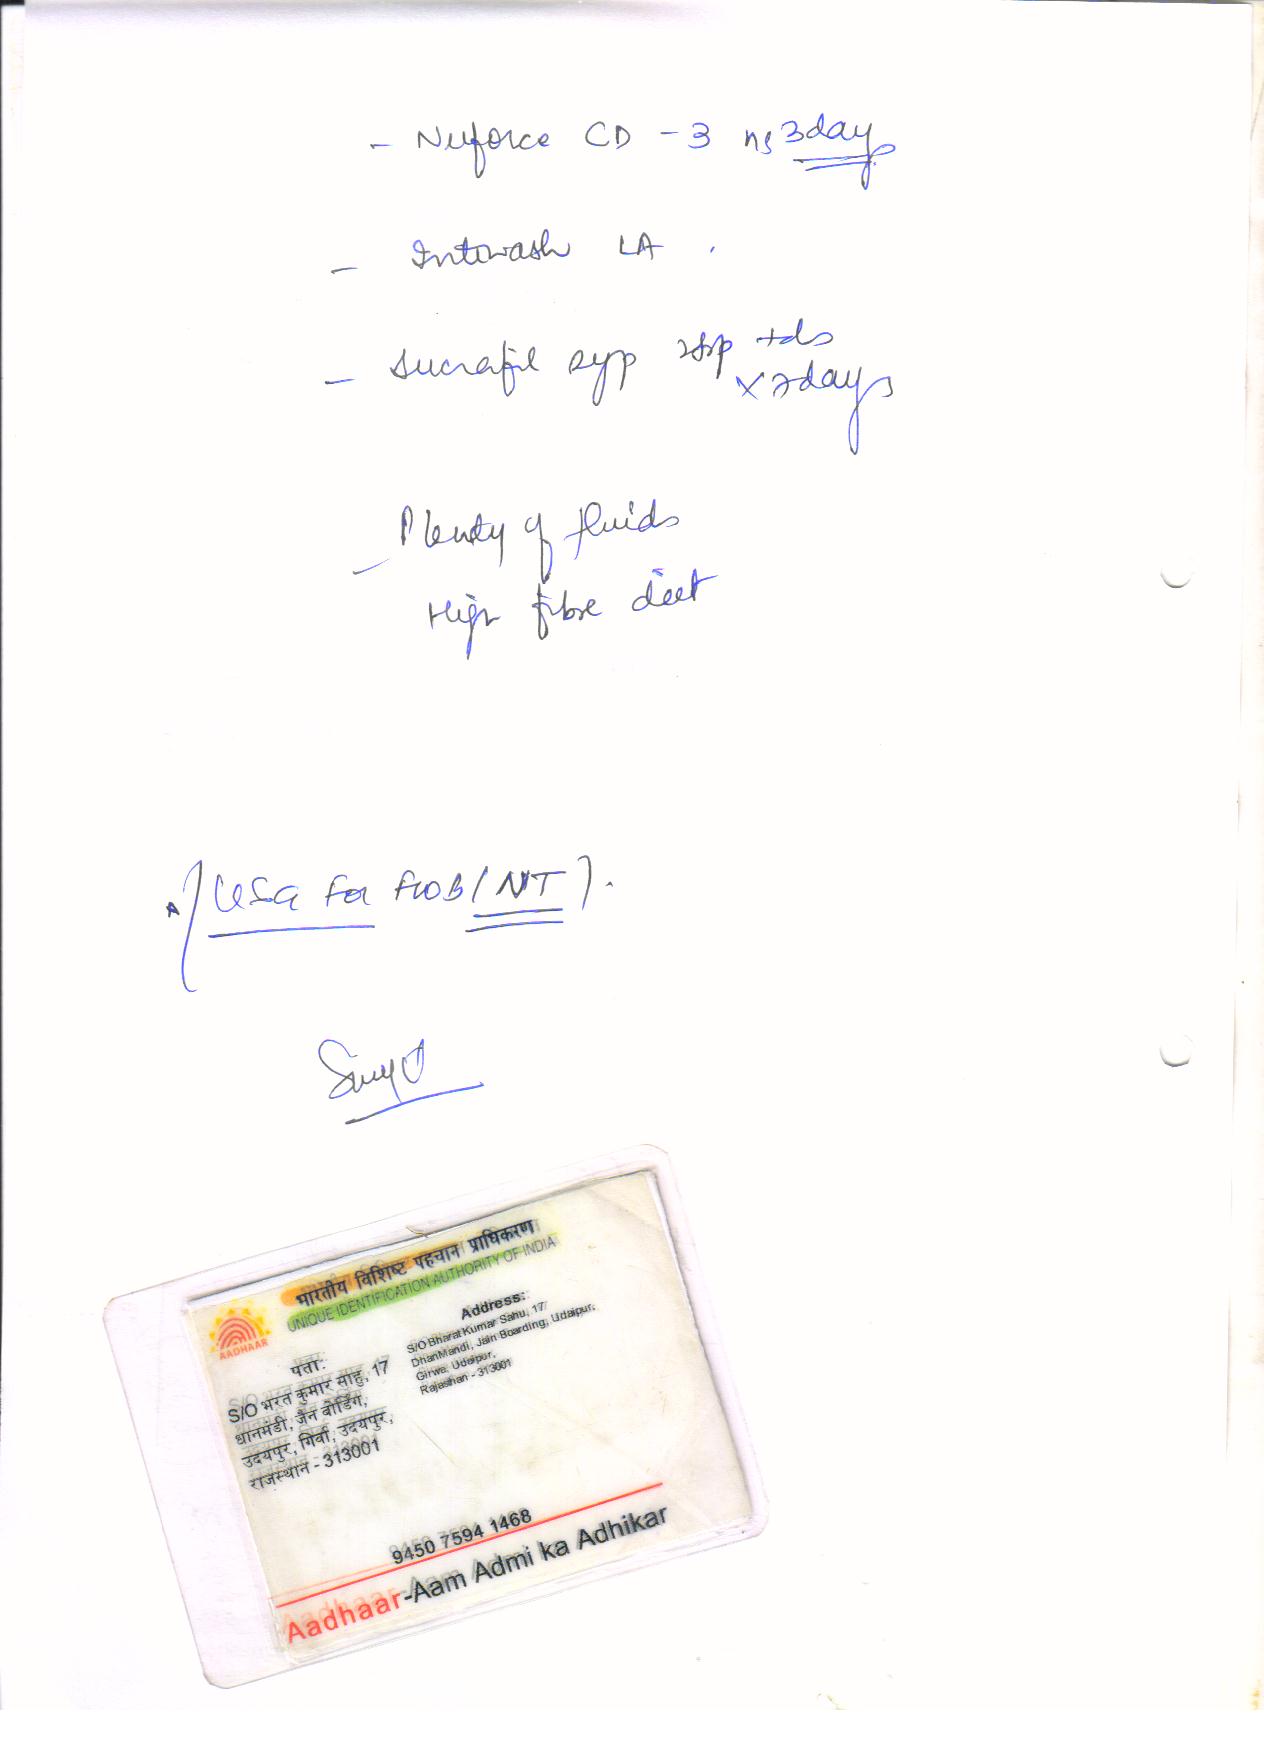 - Nuforce CD - 3 ns 3day
- Intwash LA .
- Sucrafil syp 2tsp tds
x 7days
- Plenty of fluids
High fibre diet
USG For FWB (NT).
भारतीय विशिष्ट पहचान प्राधिकरण
UNIQUE IDENTIFICATION AUTHORITY OF INDIA
AADHAAR
पता:
S/O भरत कुमार साहु, 17
धानमंडी, जैन बोर्डिंग,
उदयपुर, गिर्वा, उदयपुर,
राजस्थान - 313001
Address:
S/O Bharat Kumar Sahu, 17
DhanMandi, Jain Boarding, Udaipur,
Girwa, Udaipur,
Rajasthan - 313001
9450 7594 1468
Aadhaar-Aam Admi ka Adhikar